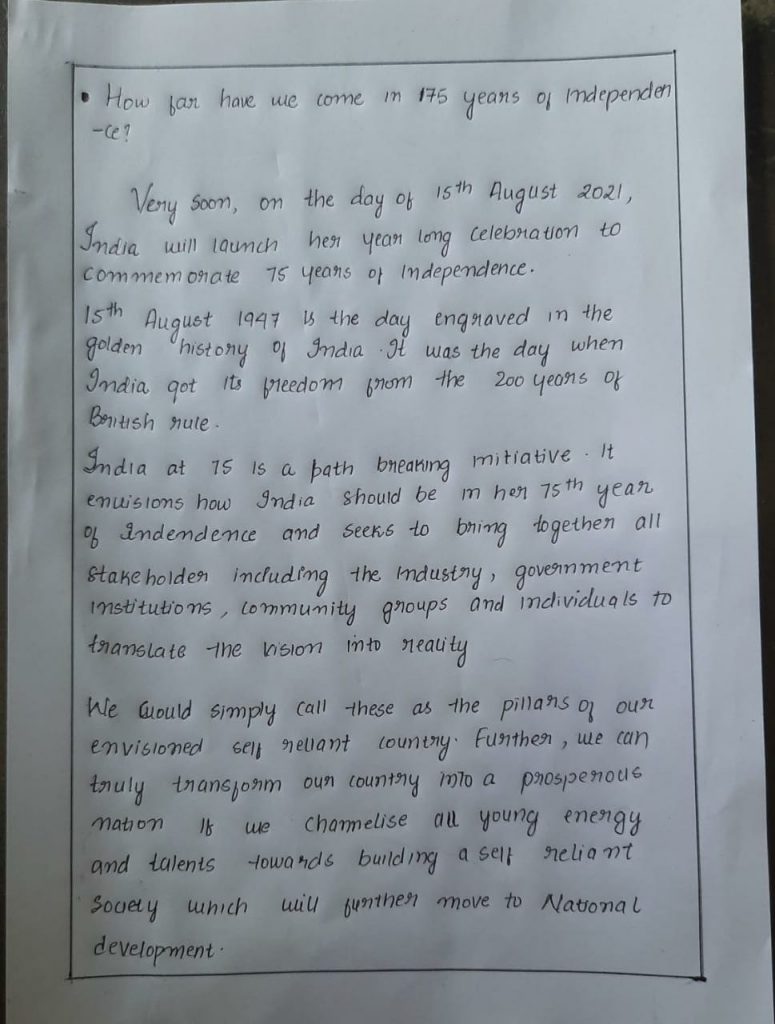 • How far have we come in 175 years of Independen
-ce?
Very soon, on the day of 15th August 2021,
India will launch her year long celebration to
commemorate 75 years of Independence.
15th August 1947 is the day engraved in the
golden history of India. It was the day when
India got its freedom from the 200 years of
British rule.
India at 75 is a path breaking initiative. It
envisions how India should be in her 75th year
of Indendence and seeks to bring together all
stakeholder including the industry, government
institutions, community groups and individuals to
translate the vision into reality
We would simply call these as the pillars of our
envisioned self reliant country. Further, we can
truly transform our country into a prosperous
nation if we channelise all young energy
and talents towards building a self reliant
society which will further move to National
development.